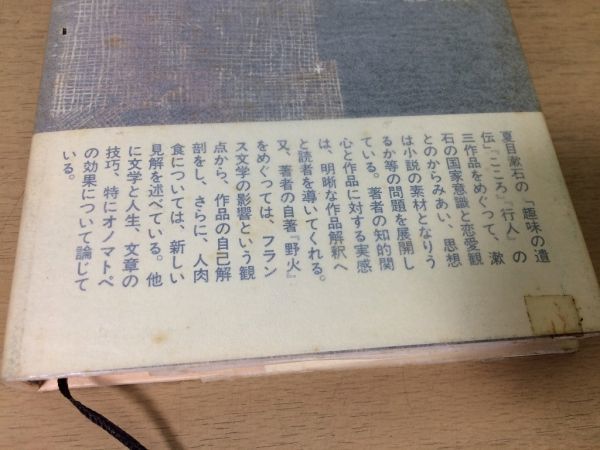 夏目漱石の「趣味の遺
伝」『こころ』『行人』の
三作品をめぐって、漱
石の国家意識と恋愛観
とのからみあい、思想
は小説の素材となりう
るか等の問題を展開し
ている。著者の知的関
心と作品に対する実感
は、明晰な作品解釈へ
と読者を導いてくれる。
又、著者の自著『野火』
をめぐっては、フラン
ス文学の影響という観
点から、作品の自己解
剖をし、さらに、人肉
食については、新しい
見解を述べている。他
に文学と人生、文章の
技巧、特にオノマトペ
の効果について論じて
いる。